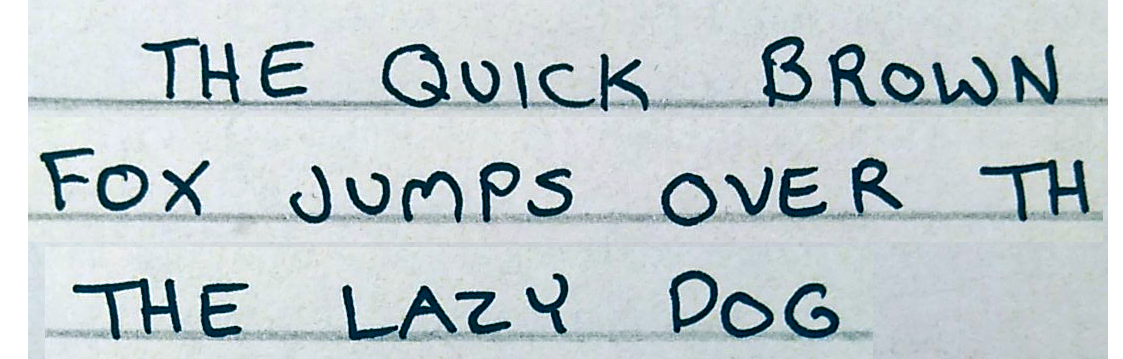 THE QUICK BROWN
FOX JUMPS OVER TH
THE LAZY DOG